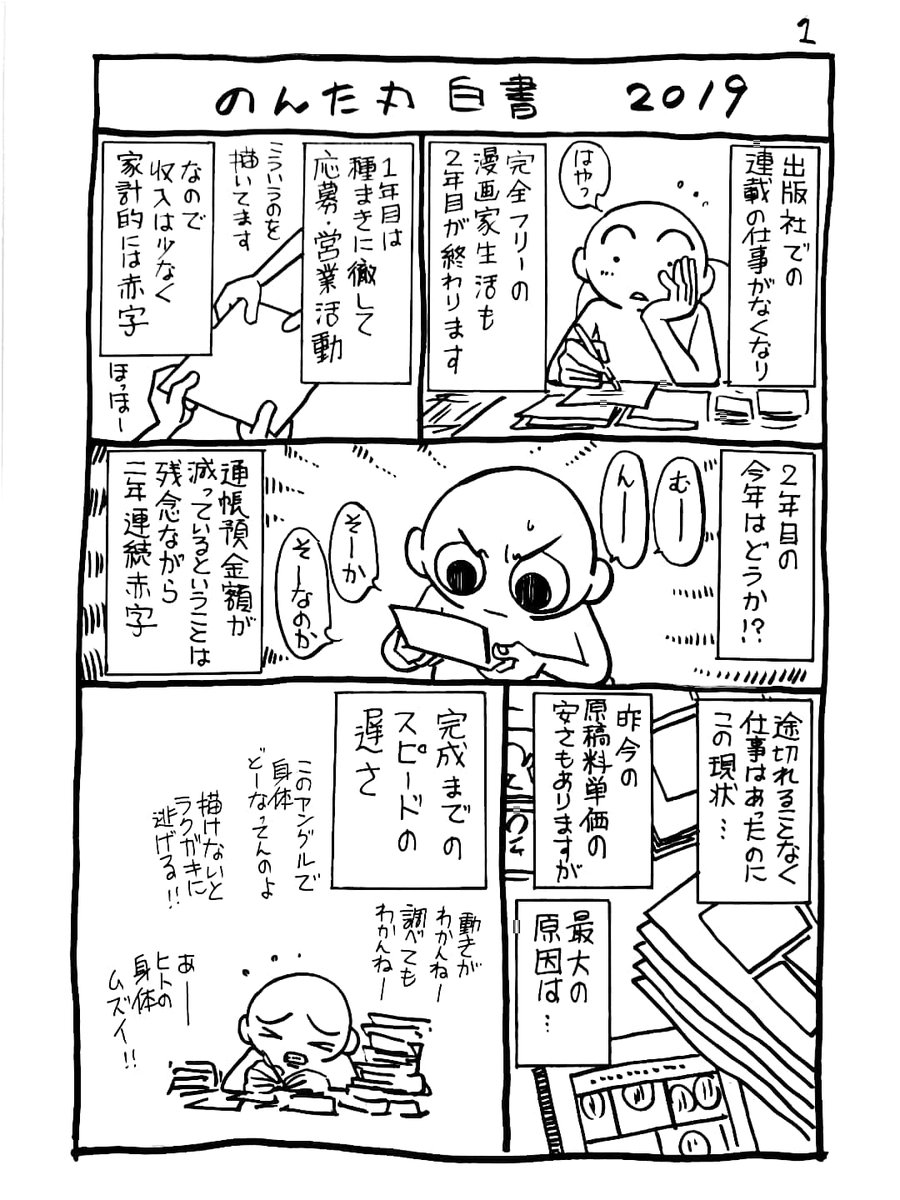 1
のんた丸 白書 2019
出版社での
連載の仕事がなくなり
はやっ
完全フリーの
漫画家生活も
2年目が終わります
1年目は
種まきに徹して
応募・営業活動
こういうのを
描いてます
なので
収入は少なく
家計的には赤字
ほっほー
2年目の
今年はどうか!?
むー
んー
そーか
そーなのか
通帳預金額が
減っているということは
残念ながら
二年連続赤字
途切れることなく
仕事はあったのに
この現状…
昨今の
原稿料単価の
安さもありますが
最大の
原因は…
完成までの
スピードの
遅さ
このアングルで
身体
どーなってんのよ
描けないと
ラクガキに
逃げる!!
動きが
わかんねー
調べても
わかんねー
あー
ヒトの
身体
ムズイ!!